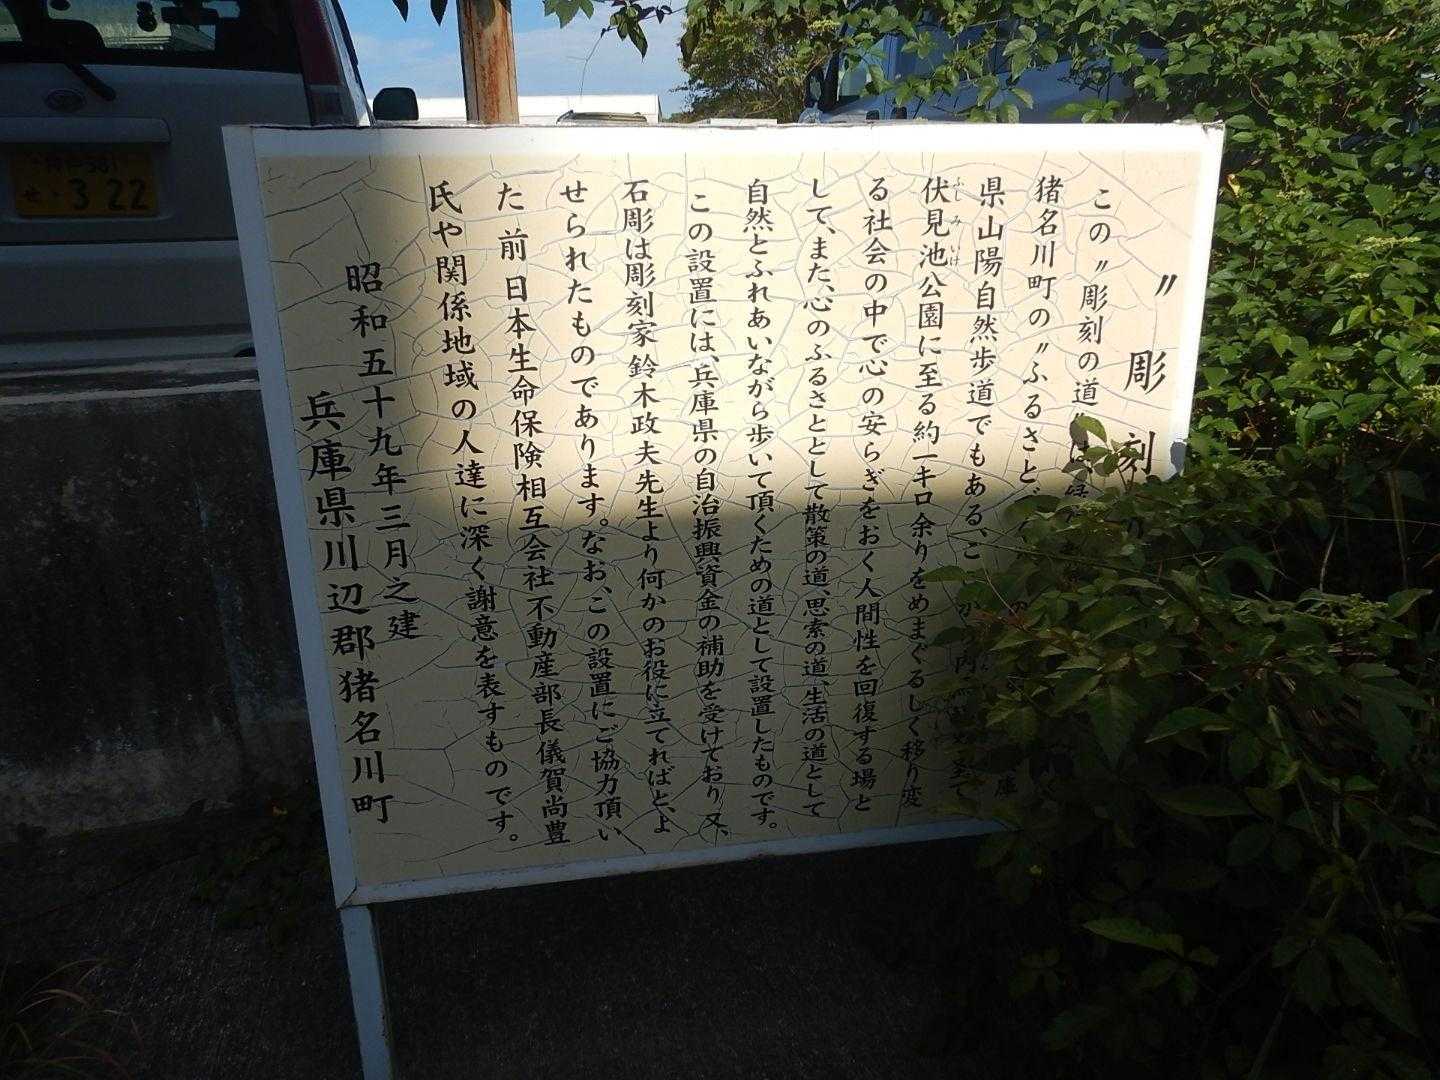 〃彫刻
この〃彫刻の道
猪名川町の〃ふるさと
庫
県山陽自然歩道でもある、こ
伏見池公園に至る約一キロ余りをめまぐるしく移り変
ふしみいけ
る社会の中で心の安らぎをおく人間性を回復する場と
して、また、心のふるさととして散策の道、思索の道、生活の道として
自然とふれあいながら歩いて頂くための道として設置したものです。
この設置には、兵庫県の自治振興資金の補助を受けており、又、
石彫は彫刻家鈴木政夫先生より何かのお役に立てればと、よ
せられたものであります。なお、この設置にご協力頂い
た前日本生命保険相互会社不動産部長儀賀尚豊
氏や関係地域の人達に深く謝意を表すものです。
昭和五十九年三月之建
兵庫県川辺郡猪名川町
神戸 581
せ 322